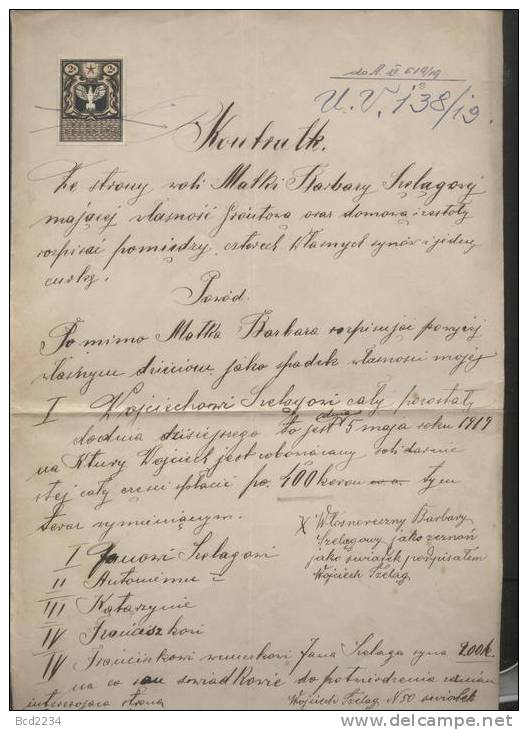 2 2
do A. XI 619/19
U. V. 138/19.
Kontratk.
Ze strony woli Matki Barbary Szelągowy
mającej własność Gróntową oraz domową i zostały
rozpisać pomiędzy czterech własnych synów i jedną
curką.
Powód.
Po mimo Matka Barbara rozpisując powyżej
własnym dzieciom jako spadek własności mojej
I Wojciechowi Szelągowi cały pozostały
do dnia dzisiejszego to jest 5 maja roku 1919
na Ktury Wojciech jest solidarnie
z tej cały czesci spłacić po. 400 koron tym
teraz wymieniącym.
X Własnoręczny Barbary
Szelągowy jako
jako świadek podpisałem
Wojciech Szeląg
I Janowi Szelągowi
II Antoniemu "
III Katarzynie
IV Franciszkowi
IV Franciszkowi wnuczkowi Jana Szeląga syna 200 k.
na co są świadkowie do potwierdzenia
strona
Wojciech Szeląg N 50 świadek
BCD2234
www.delcampe.net